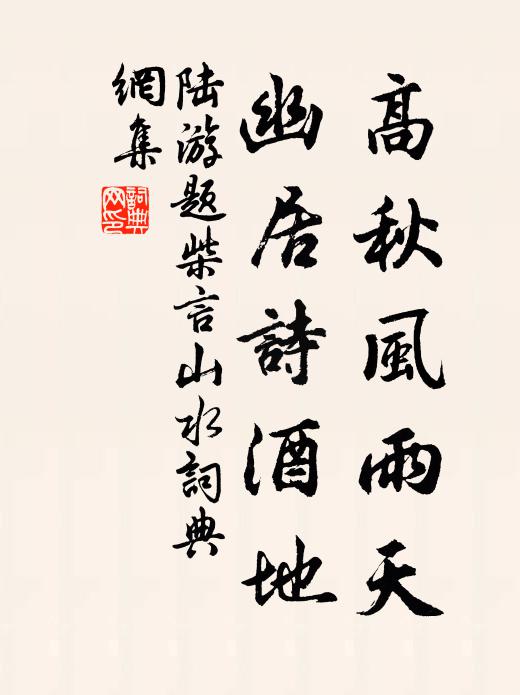 高秋風雨天
幽居詩酒地
陆游题柴言山水詞典
網集
詞典
网印